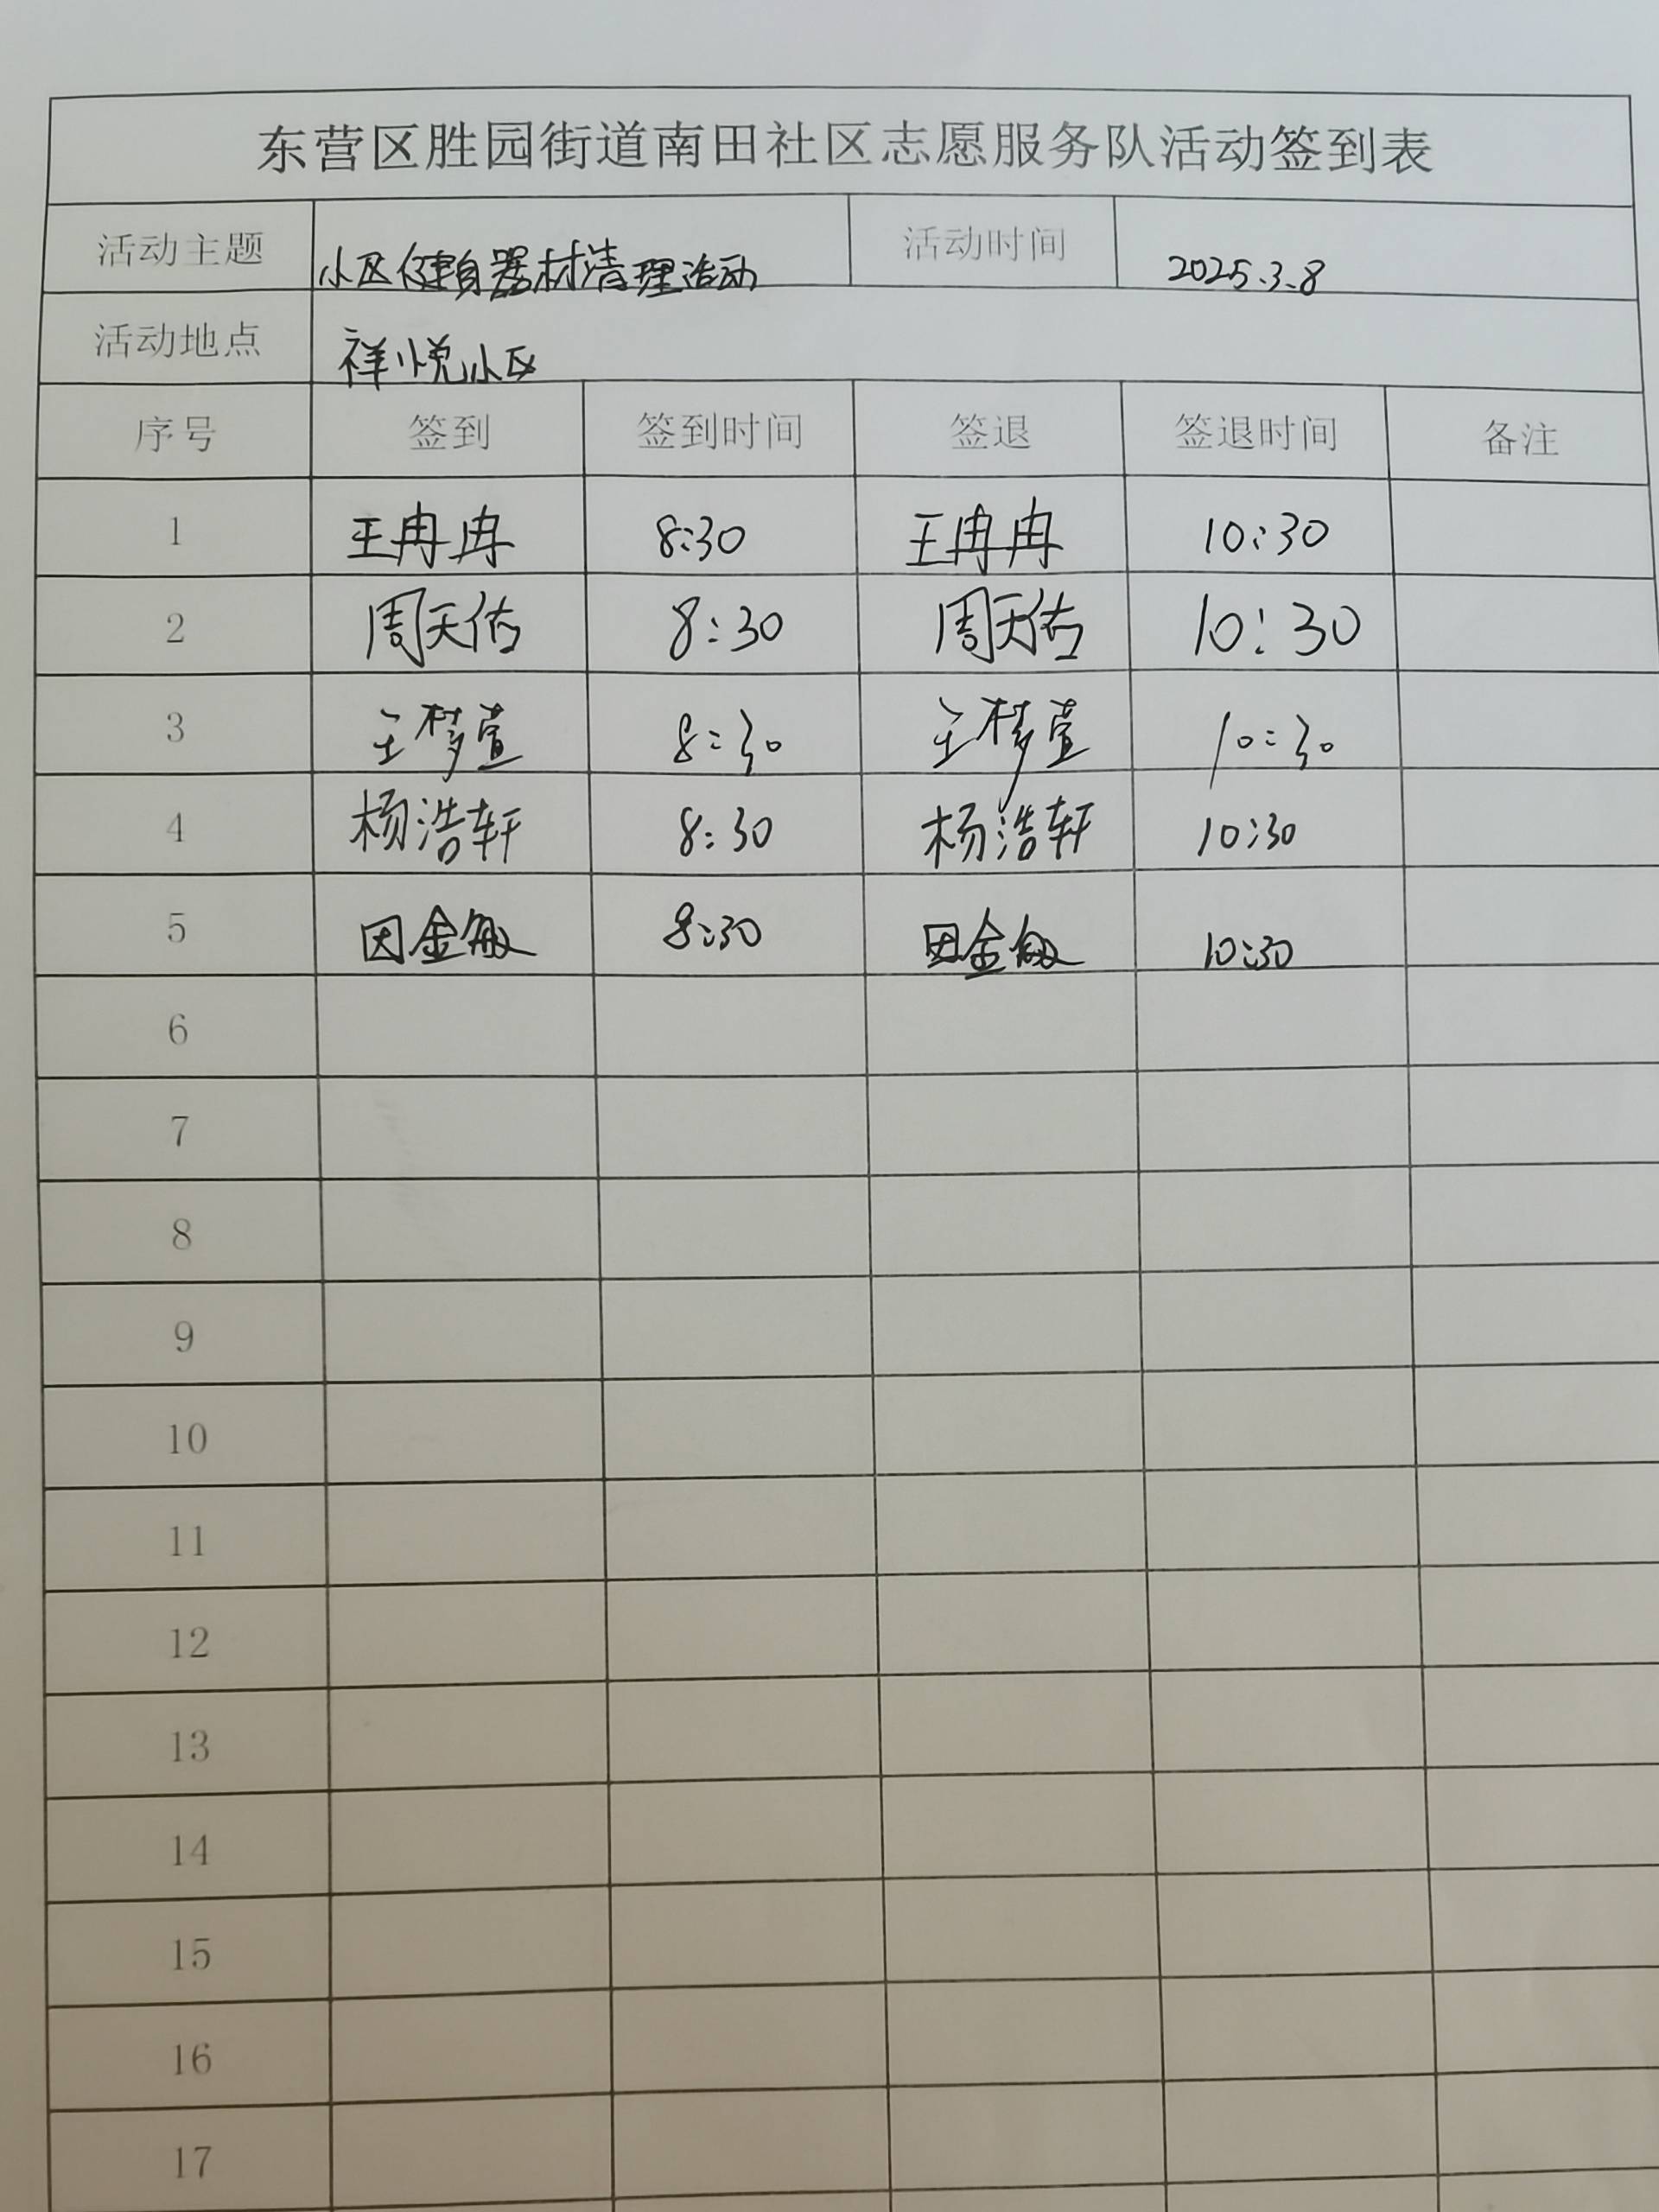 东营区胜园街道南田社区志愿服务队活动签到表
活动主题 小区健身器材清理活动 活动时间 2025.3.8
活动地点 祥悦小区
序号 签到 签到时间 签退 签退时间 备注
1 王冉冉 8:30 王冉冉 10:30
2 周天佑 8:30 周天佑 10:30
3 王梦萱 8:30 王梦萱 10:30
4 杨浩轩 8:30 杨浩轩 10:30
5 因金敏 8:30 因金敏 10:30
6
7
8
9
10
11
12
13
14
15
16
17